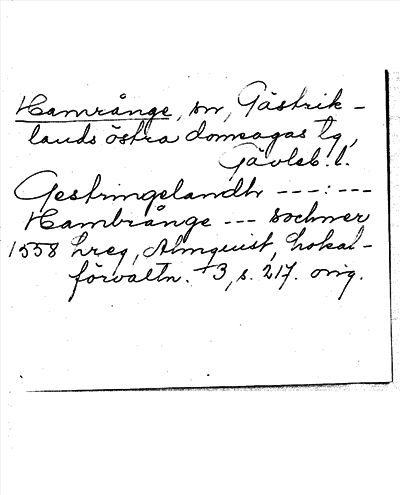 Hamrånge, sn, Gästrik-
lands östra domsagas tg,
Gävleb. l.
Gestringelandh ---:---
Hambrånge --- sochner
1558 hreg, Almquist, Lokal-
förvaltn. 3, s. 217. orig.